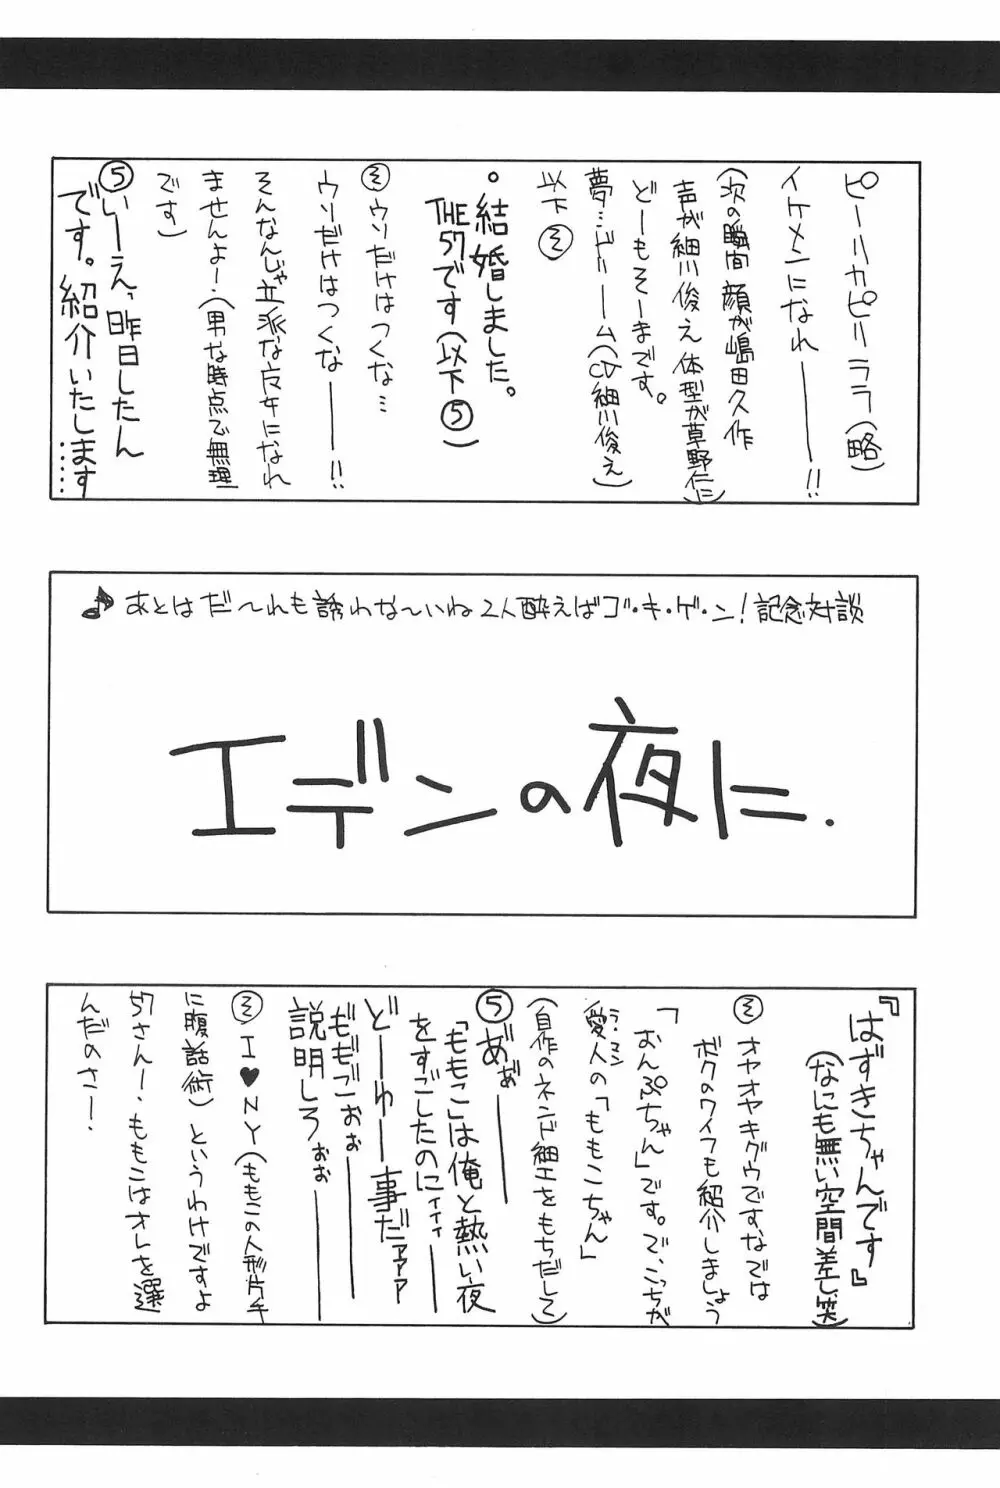 ピーリカピリララ（略）
イケメンになれー！！
（次の瞬間 顔が嶋田久作
声が細川俊え体型が草野仁に）
どーもそーまです。
夢…ドリーーム（CV細川俊え）
以下そ
。結婚しました。
THE57です（以下5）
そウソだけはつくな…
ウソだけはつくなー！！
そんなんじゃ立派な女になれ
ませんよー（男な時点で無理
です）
5いーえ、昨日したん
です。紹介いたします……
♪あとはだ〜れも誘わな〜いね2人酔えばゴ・キ・ゲ・ン！記念対談
エデンの夜に.
『はずきちゃんです』
（なにも無い空間差し笑）
そオヤオヤキグウですなでは
ボクのワイフも紹介しましょう
「おんぷちゃん」です。で、こっちが
愛人の「ももこちゃん」
ラ・マン
（自作のネンド細工をもちだして）
5あ゛ぁ゛ーー
「ももこ」は俺と熱い夜
をすごしたのにィィィー
どーゆー事だァァァ
ももごぉぉー
説明しろぉぉー
そI♥NY（ももこの人形片手
に腹話術）というわけですよ
57さんー、ももこはオレを選
んだのさー！